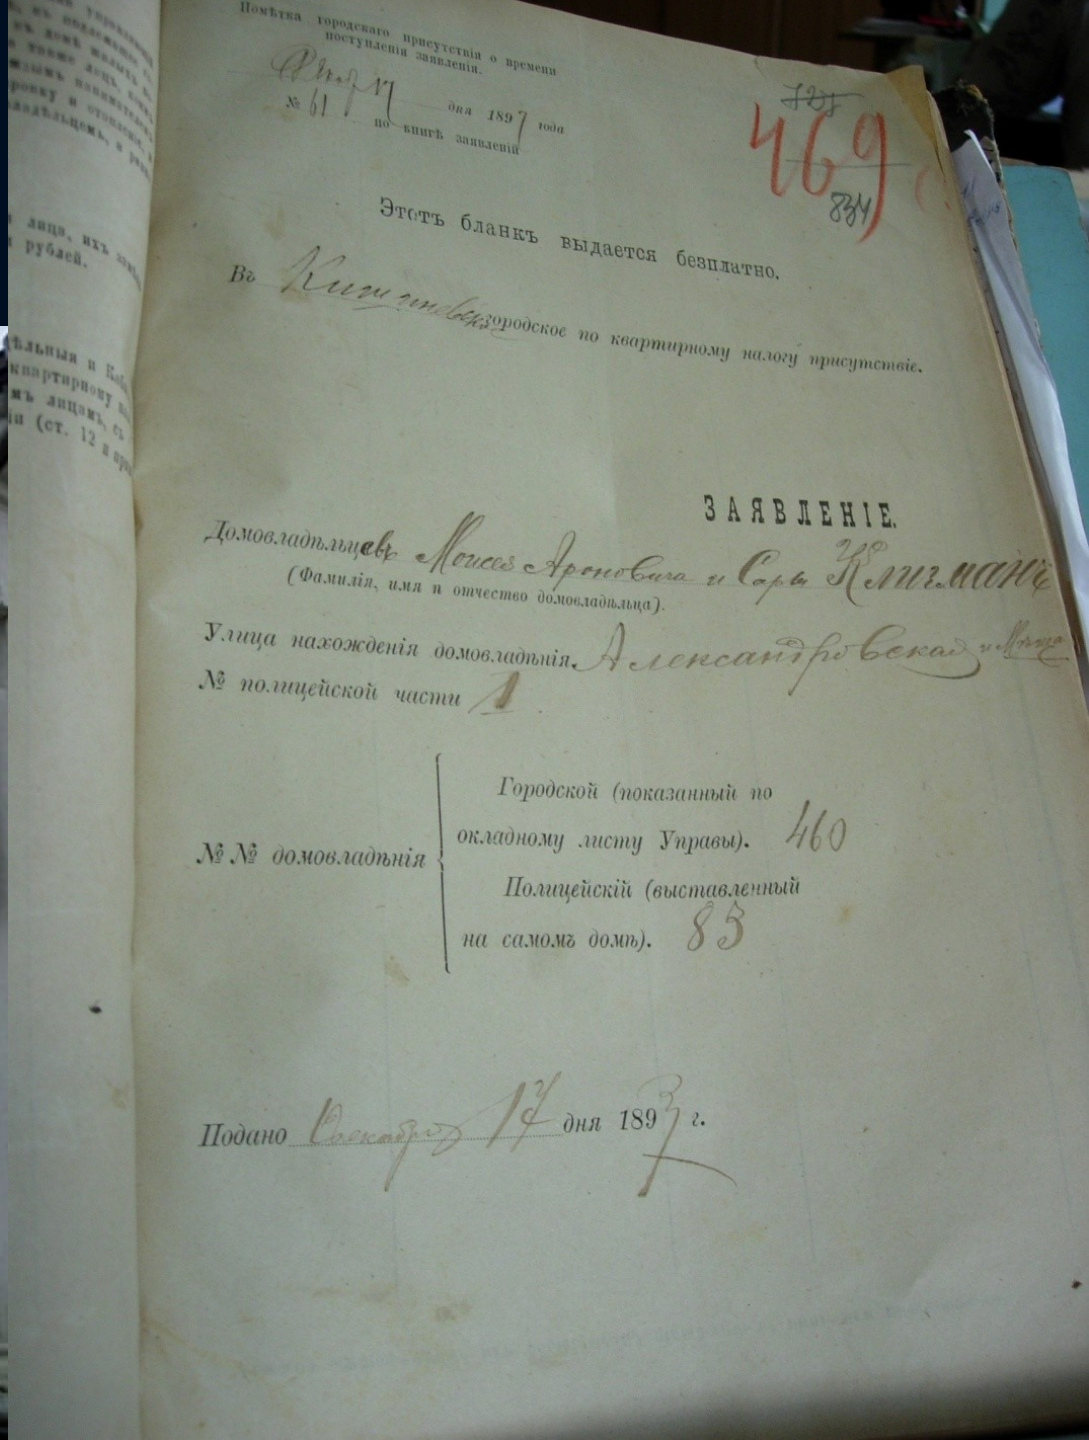 Помѣтка городскаго присутствія о времени
поступленія заявленія.
Декаб 17 дня 1897 года
№ 61 по книгѣ заявленій
727
469
834
Этотъ бланкъ выдается безплатно.
Въ Кишиневское городское по квартирному налогу присутствіе.
ЗАЯВЛЕНІЕ.
Домовладѣльцевъ Моисея Ароновича и Сары Клигманъ
(Фамилія, имя и отчество домовладѣльца).
Улица нахожденія домовладѣнія. Александровская и
№ полицейской части 1
Городской (показанный по
окладному листу Управы). 460
№ № домовладѣнія
Полицейскій (выставленный
на самомъ домѣ). 83
Подано Декабря 17 дня 1897 г.
лица, ихъ
рублей.
квартирному
лицамъ, съ
(ст. 12 и